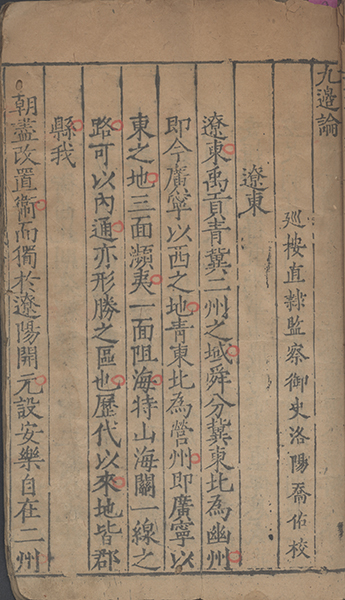 九邊論
巡按直隸監察御史洛陽喬佑校
遼東
遼東禹貢青冀二州之域舜分冀東北為幽州
即今廣寧以西之地青東北為營州即廣寧以
東之地三面瀕夷一面阻海特山海關一線之
路可以內通亦形勝之區也歷代以來地皆郡
縣我
朝盡改置衞而獨於遼陽開元設安樂自在二州